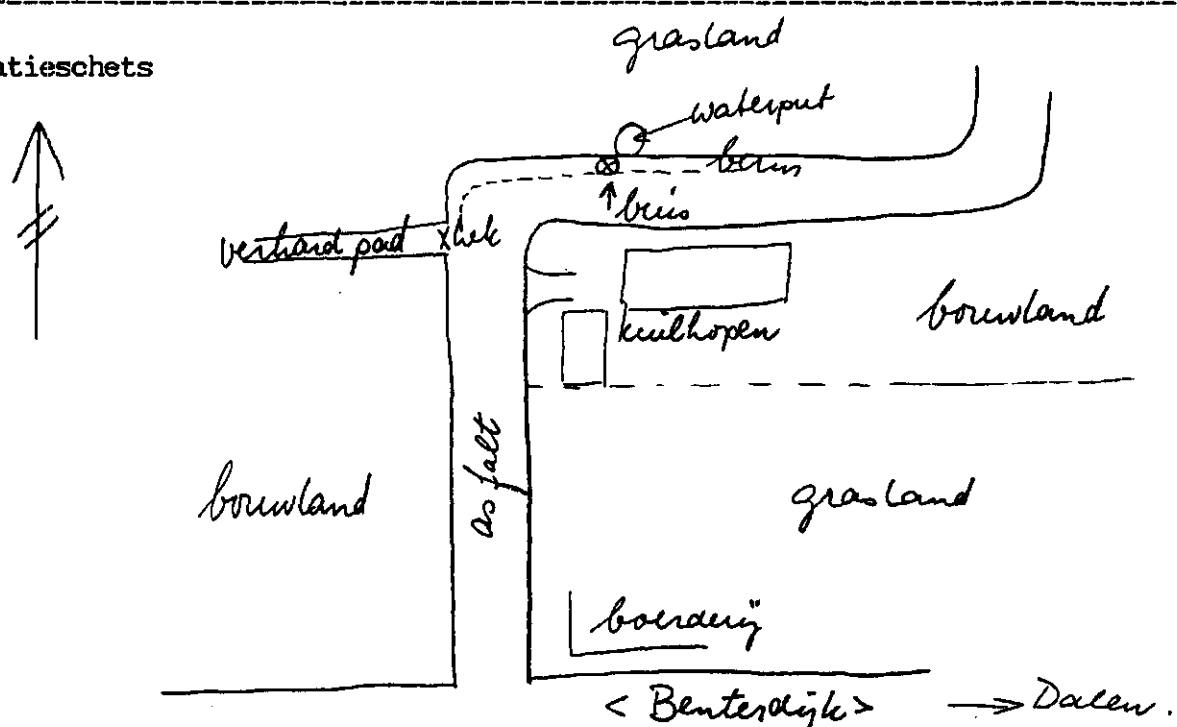 grasland
atieschets
waterput
berm
buis
verhard pad
hek
kuilhopen
bouwland
asfalt
bouwland
grasland
boerderij
< Benterdijk > → Dalen.